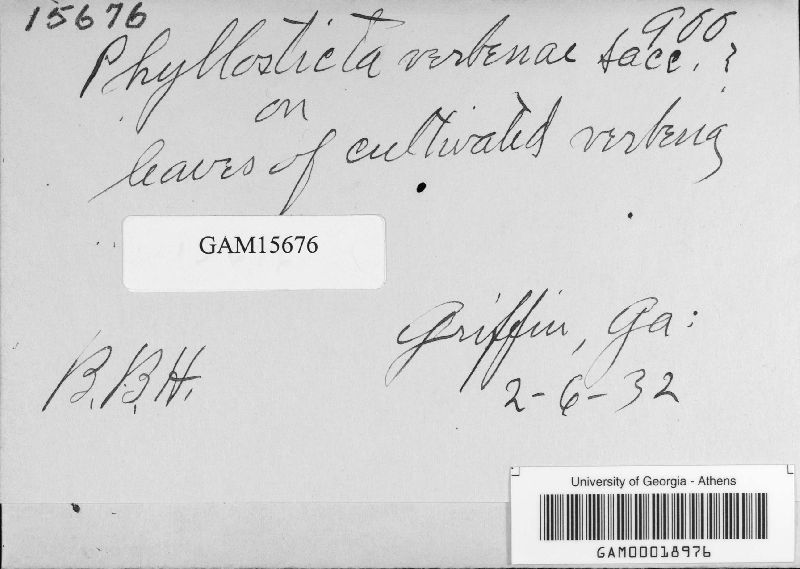 15676
900
Phyllosticta verbenae Sacc. ?
on
leaves of cultivated verbena
GAM15676
Griffin, Ga:
B.B.H.
2-6-32
University of Georgia - Athens
GAM00018976